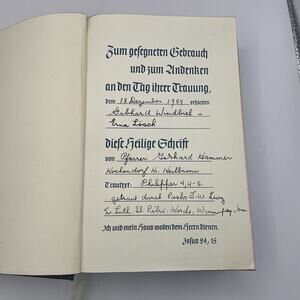 Zum gesegneten Gebrauch
und zum Andenken
an den Tag ihrer Trauung,
dem 18 Dezember 1954 erhielten
Gebhard Windbiel u.
Erna Lösch
diese Heilige Schrift
von Pfarrer Gerhard Hammer
Kochendorf K. Heilbronn
Trautext: Philipper 4, 4-5.
getraut durch Pastor
Ev. Luth. St. Petri-Kirche,
Ich und mein Haus wollen dem Herrn dienen.
Josua 24, 15